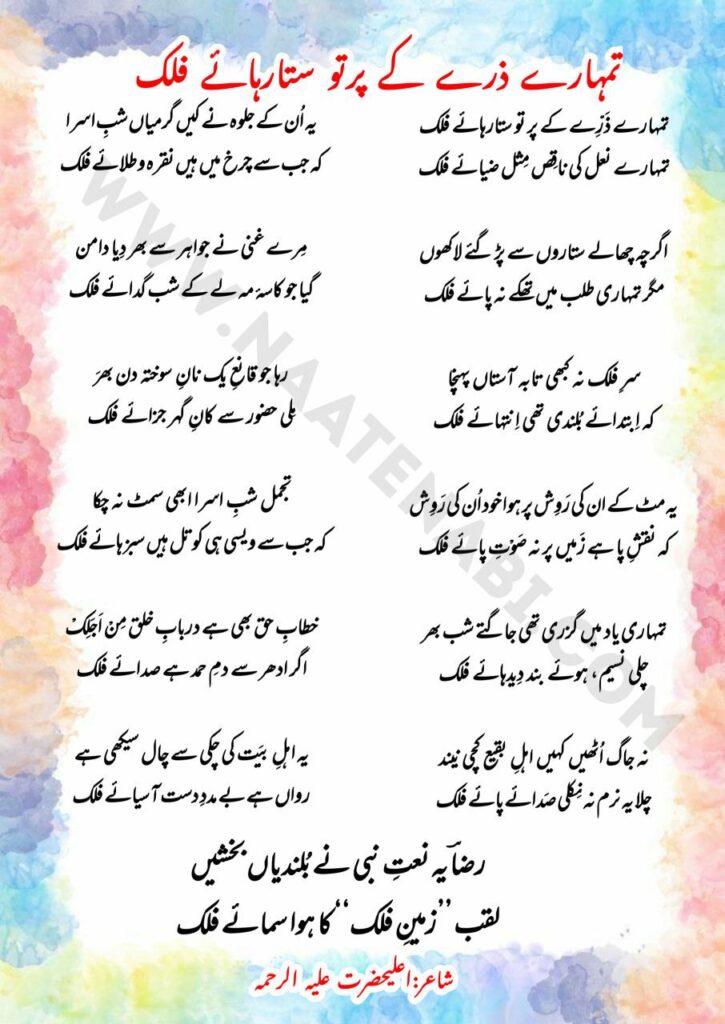 تمہارے ذرے کے پرتو ستارہائے فلک
تمہارے ذَرّے کے پرتو ستارہائے فلک
تمہارے نعل کی ناقِص مِثل ضیائے فلک
اگرچہ چھالے ستاروں سے پڑ گئے لاکھوں
مگر تمہاری طلب میں تھکے نہ پائے فلک
سرِ فلک نہ کبھی تا بہ آستاں پہنچا
کہ اِبتدائے بُلندی تھی اِنتہائے فلک
یہ مٹ کے ان کی رَوِش پر ہوا خود اُن کی رَوِش
کہ نقشِ پا ہے زَمیں پر نہ صَوتِ پائے فلک
تمہاری یاد میں گزری تھی جاگتے شب بھر
چلی نسیم، ہوئے بند دِیدہائے فلک
نہ جاگ اُٹھیں کہیں اہلِ بقیع کچی نیند
چلا یہ نرم نہ نِکلی صَدائے پائے فلک
یہ اُن کے جلوہ نے کیں گرمیاں شبِ اسرا
کہ جب سے چرخ میں ہیں نقرہ و طلائے فلک
مِرے غنی نے جواہر سے بھر دِیا دامن
گیا جو کاسۂ مہ لے کے شب گدائے فلک
رہا جو قانعِ یک نانِ سوختہ دن بھر
ملی حضور سے کانِ گہر جزائے فلک
تجمل شبِ اسرا ابھی سمٹ نہ چکا
کہ جب سے ویسی ہی کوتل ہیں سبزہائے فلک
خطابِ حق بھی ہے در بابِ خلق مِنْ اَجَلِکْ
اگر ادھر سے دمِ حمد ہے صدائے فلک
یہ اہلِ بیَت کی چکی سے چال سیکھی ہے
رواں ہے بے مددِ دست آسیائے فلک
رضاؔ یہ نعتِ نبی نے بُلندیاں بخشیں
لقب ’’زمینِ فلک‘‘ کا ہوا سمائے فلک
شاعر: اعلیحضرت علیہ الرحمہ
WWW.NAATENABI.COM